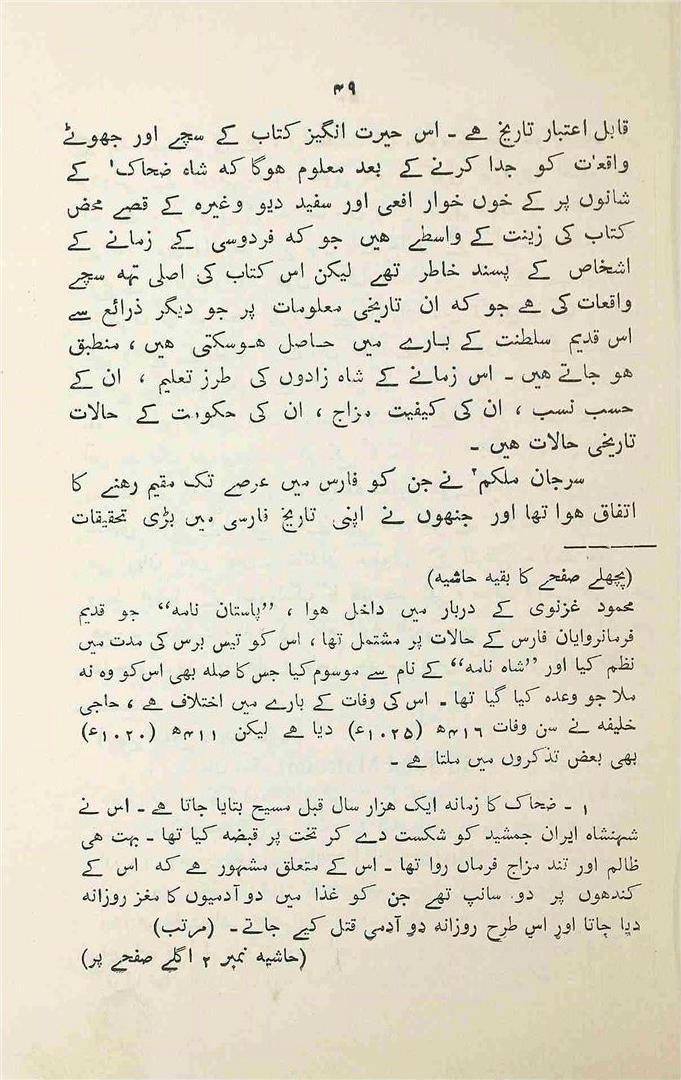 ۴۹
قابل اعتبار تاریخ ہے ۔ اس حیرت انگیز کتاب کے سچے اور جھوٹے
واقعات کو جدا کرنے کے بعد معلوم ہوگا کہ شاہ ضحاک۱ کے
شانوں پر کے خوں خوار افعی اور سفید دیو وغیرہ کے قصے محض
کتاب کی زینت کے واسطے ہیں جو کہ فردوسی کے زمانے کے
اشخاص کے پسند خاطر تھے لیکن اس کتاب کی اصلی تہہ سچے
واقعات کی ہے جو کہ ان تاریخی معلومات پر جو دیگر ذرائع سے
اس قدیم سلطنت کے بارے میں حاصل ہوسکتی ہیں ، منطبق
ہو جاتے ہیں ۔ اس زمانے کے شاہ زادوں کی طرز تعلیم ، ان کے
حسب نسب ، ان کی کیفیت مزاج ، ان کی حکومت کے حالات
تاریخی حالات ہیں ۔
سرجان ملکم۲ نے جن کو فارس میں عرصے تک مقیم رھنے کا
اتفاق ہوا تھا اور جنھوں نے اپنی تاریخ فارسی میں بڑی تحقیقات
(پچھلے صفحے کا بقیہ حاشیہ)
محمود غزنوی کے دربار میں داخل ہوا ، ”پاستان نامہ“ جو قدیم
فرمانروایان فارس کے حالات پر مشتمل تھا ، اس کو تیس برس کی مدت میں
نظم کیا اور ”شاہ نامہ“ کے نام سے موسوم کیا جس کا صلہ بھی اس کو وہ نہ
ملا جو وعدہ کیا گیا تھا ۔ اس کی وفات کے بارے میں اختلاف ہے ، حاجی
خلیفہ نے سن وفات ۴۱۶ھ (۱۰۲۵ع) دیا ہے لیکن ۴۱۱ھ (۱۰۲۰ع)
بھی بعض تذکروں میں ملتا ہے ۔
۱ ۔ ضحاک کا زمانہ ایک ہزار سال قبل مسیح بتایا جاتا ہے ۔ اس نے
شہنشاہ ایران جمشید کو شکست دے کر تخت پر قبضہ کیا تھا ۔ بہت ھی
ظالم اور تند مزاج فرماں روا تھا ۔ اس کے متعلق مشہور ہے کہ اس کے
کندھوں پر دو سانپ تھے جن کو غذا میں دو آدمیوں کا مغز روزانہ
دیا جاتا اور اس طرح روزانہ دو آدمی قتل کیے جاتے ۔ (مرتب)
(حاشیہ نمبر ۲ اگلے صفحے پر)